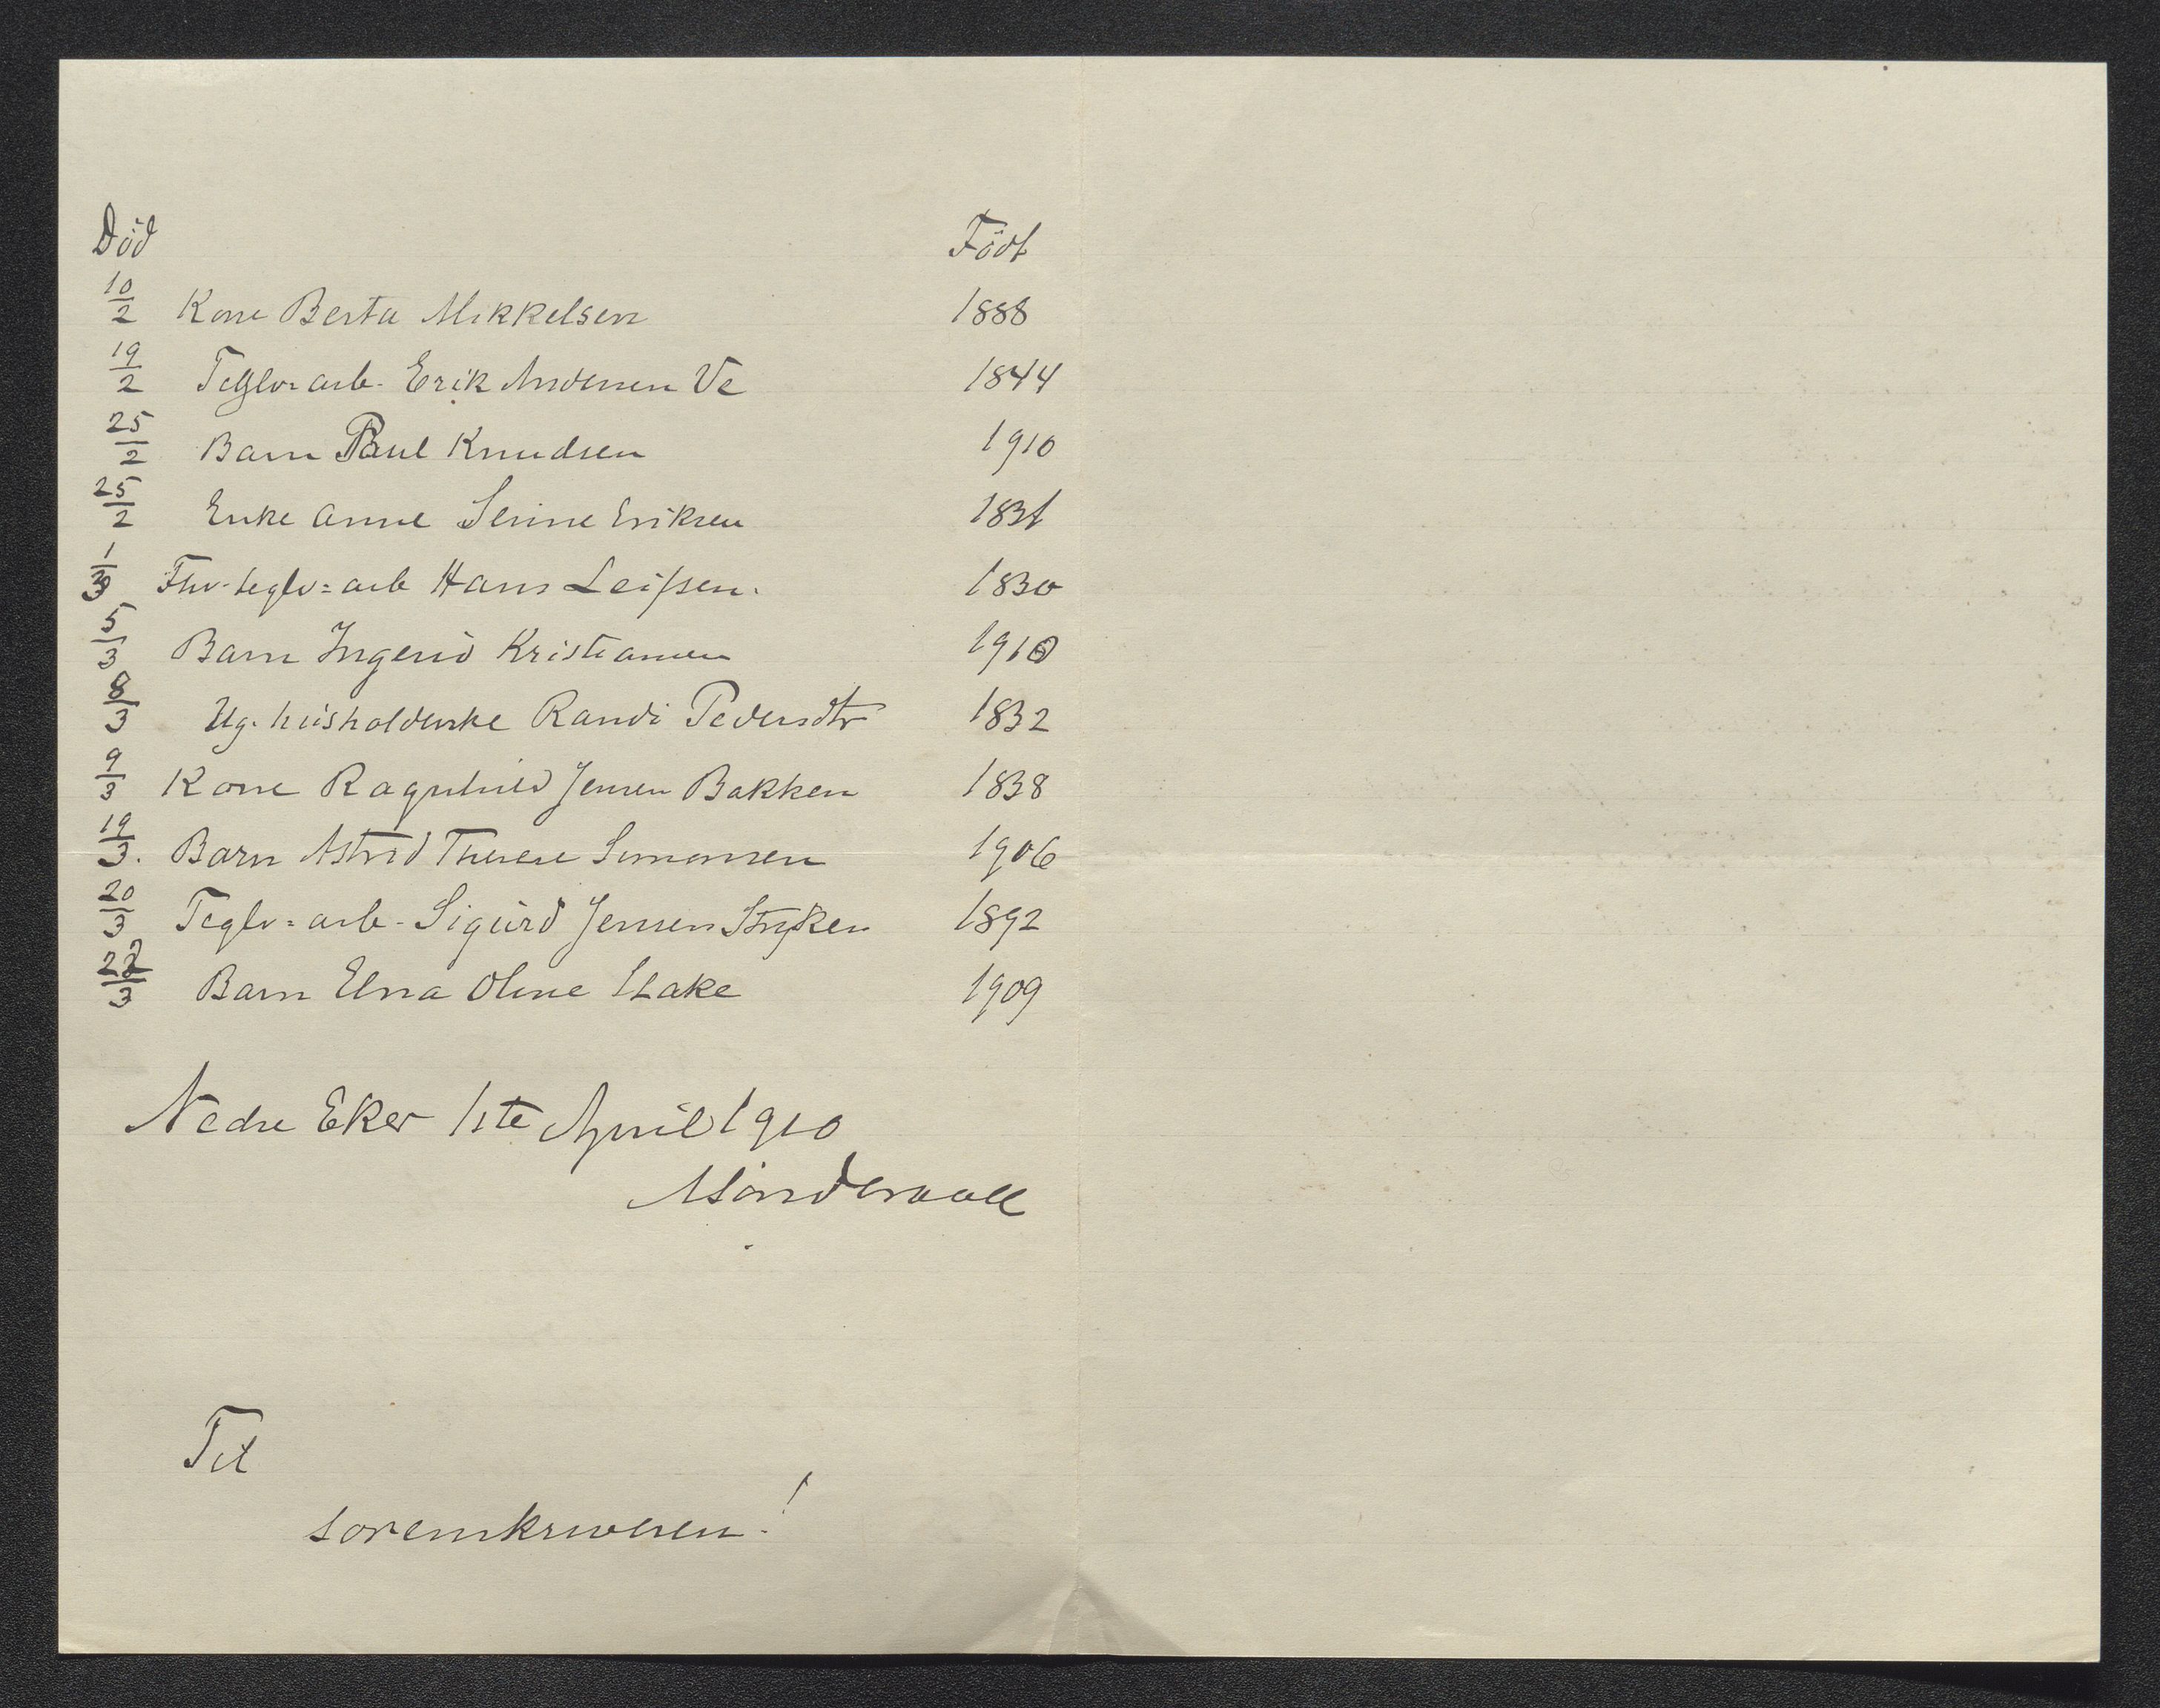 Död Födt
10/2 Kone Berta Mikkelsen 1888
19/2 Teglv=arb. Erik Andersen Ve 1844
25/2 Barn Paul Knudsen 1910
25/2 Enke Anne Serine Eriksen 1831
1/3 Fhv. teglv=arb Hans Leifsen. 1830
5/3 Barn Ingerid Kristiansen 1910
8/3 Ug. husholderske Randi Pedersdtr 1832
9/3 Kone Ragnhild Jensen Bakken 1838
19/3. Barn Astrid Therese Simonsen 1906
20/3 Teglv=arb. Sigurd Jensen Stryken 1892
22/3 Barn Elna Oline Stake 1909
Nedre Eker 1ste April 1910
Til
sorenskriveren!